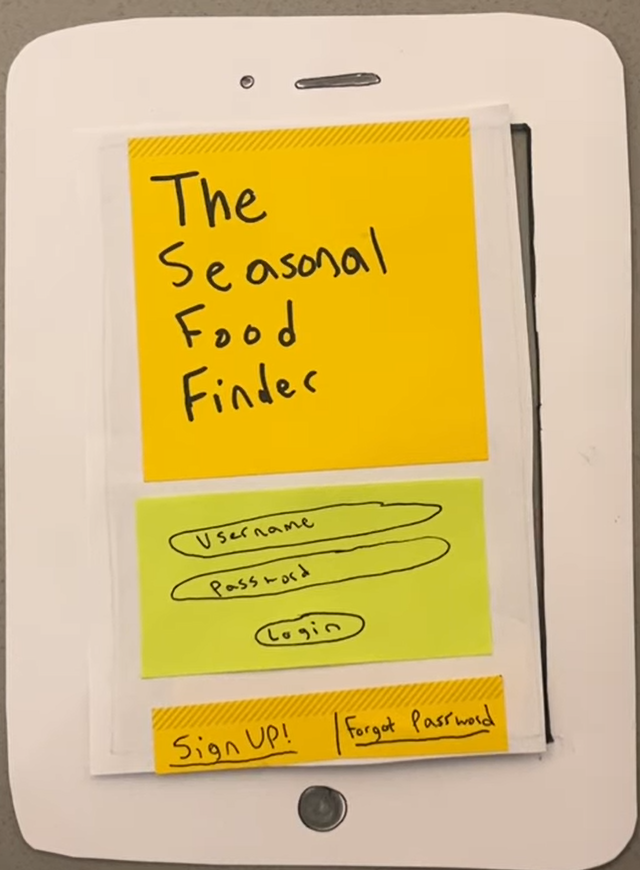 The
Seasonal
Food
Finder
Username
Password
Login
Sign UP! | Forgot Password